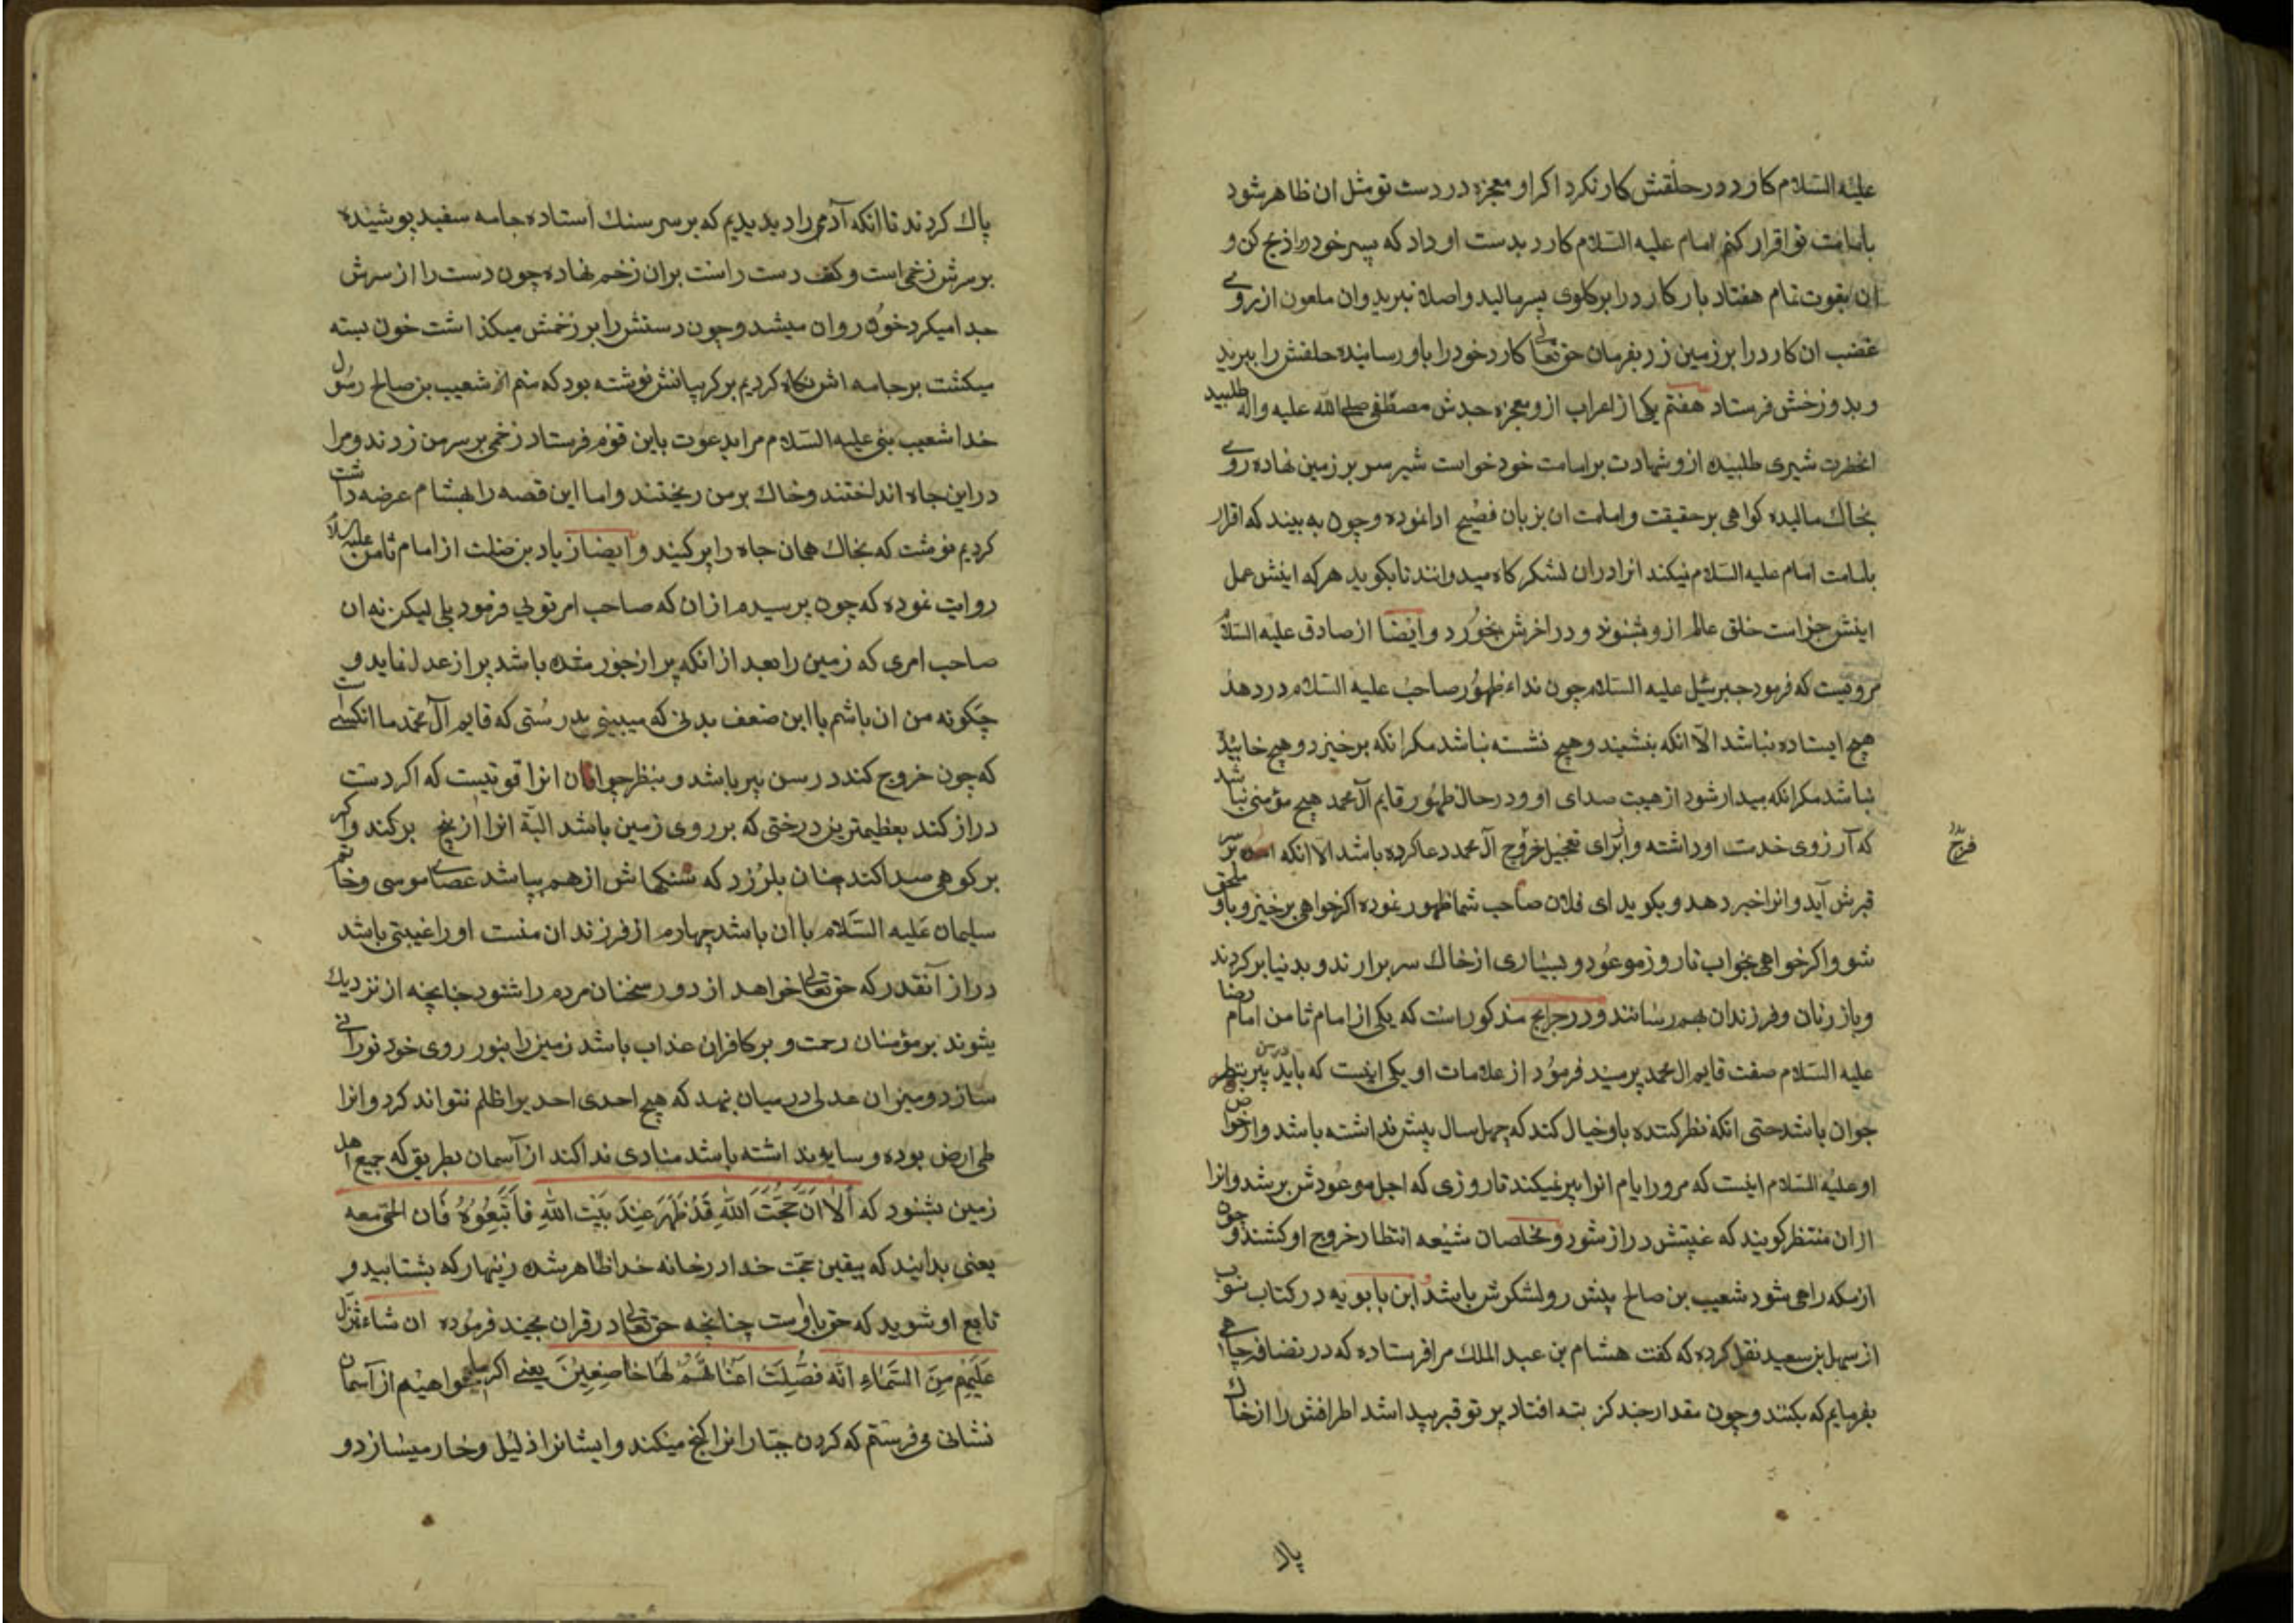 علیه السلام کارد در حلقش کار نکرد اکر او معجزه در دست تو مثل ان ظاهر شود
بامامت تو اقرار کنم امام علیه السلام کارد بدست او داد که پسر خود را ذبح کن و
ان بقوت تمام هفتاد بار کارد را بر کلوی پسر مالید و اصلا نبرید وان ملعون از روی
غضب ان کارد را بر زمین زد بفرمان حق تعالی کارد خود را باو رسانیده حلقش را ببرید
و بدوزخش فرستاد هفتم یکی از اعراب ازو معجزه جدش مصطفی صلی الله علیه واله طلبید
انحضرت شیری طلبیده ازو شهادت بر امامت خود خواست شیر سر بر زمین نهاده روی
بخاک مالیده کواهی بر حقیقت و امامت ان بزبان فصیح ادا نموده و چون به بیند که اقرار
بامامت امام علیه السلام نمیکند انرا دران لشکر کاه میدواند تا بکوید هر که اینش عمل
اینش جزاست خلق عالم ازو شنوند و در اخرش بخورد و ایضا از صادق علیه السلام
مرویست که فرمود جبرئیل علیه السلام چون نداء ظهور صاحب علیه السلام در دهد
هیچ ایستاده نباشد الا انکه بنشیند و هیچ نشسته نباشد مکر انکه برخیزد و هیچ خابیده
نباشد مکر انکه بیدار شود از هیبت صدای او و در حال ظهور قایم آل محمد هیچ مؤمنی نباشد
که آرزوی خدمت او داشته و از برای تعجیل خروج آل محمد دعا کرده باشد الا انکه بر سر
فرج
قبرش آید و انرا خبر دهد و بکوید ای فلان صاحب شما ظهور نموده اکر خواهی برخیز و باو ملحق
شو و اکر خواهی بخواب تا روز موعود و بسیاری از خاک سر برارند و بدنیا بر کردند
و باز زنان و فرزندان بهم رسانند و در جرایح مذکور است که یکی از امام ثامن امام رضا
علیه السلام صفت قایم ال محمد پرسید فرمود از علامات او یکی اینست که باید در سن پیر بنظر
جوان باشد حتی انکه نظر کننده باو خیال کند که چهل سال بیش نداشته باشد و از خواص
او علیه السلام اینست که مرور ایام انرا پیر نمیکند تا روزی که اجل موعودش برسد وانرا
ازان منتظر کویند که غیبتش دراز شود و مخلصان شیعه انتظار خروج او کشند و چون
از مکه راهی شود شعیب بن صالح پیش رو لشکرش باشد ابن بابویه در کتاب نبوت
از سهل بن سعید نقل کرده که کفت هشام بن عبد الملک مرا فرستاده که در رصافه چاهی
بفرمایم که بکنند و چون مقدار چند کز بته افتاد پر تو قبر پیدا شد اطرافش را از خاک
پاک
پاک کردند تا انکه آدمی را دیدیم که بر سر سنک استاده جامه سفید پوشیده
بر سرش زخمی است و کف دست راست بران زخم نهاده چون دست را از سرش
جدا میکرد خون روان میشد و چون دستش را بر زخمش میکذاشت خون بسته
میکشت بر جامه اش نکاه کردیم بر کریبانش نوشته بود که منم شعیب بن صالح رسول
خدا شعیب نبی علیه السلام مرا بدعوت باین قوم فرستاد زخمی بر سر من زدند و مرا
در این چاه انداختند و خاک بر من ریختند و اما این قصه را بهشام عرضه داشت
کردیم نوشت که بخاک همان چاه را پر کنید و ایضا زیاد بن صلت از امام ثامن علیه السلام
روایت نموده که چون پرسیدم ازان که صاحب امر توئی فرمود بلی لیکن نه ان
صاحب امری که زمین را بعد از انکه پر از جور شده باشد پر از عدل نماید و
چکونه من ان باشم با این ضعف بدنی که میبینی بدرستی که قایم آل محمد ما انکسی است
که چون خروج کند در سن پیر باشد و بنظر جوانان انرا قوتیست که اکر دست
دراز کند بعظیمترین درختی که بر روی زمین باشد البته انرا از بیخ برکند و اکر
بر کوهی صدا کند چنان بلرزد که سنکهاش از هم بپاشد عصای موسی و خاتم
سلیمان علیه السلام با ان باشد چهارم از فرزندان منست او را غیبتی باشد
دراز آنقدر که حق تعالی خواهد از دور سخنان مردم را شنود چنانچه از نزدیک
شوند بر مؤمنان رحمت و بر کافران عذاب باشد زمین را بنور روی خود نورانی
سازد و میزان عدلی در میان نهد که هیچ احدی احد یرا ظلم نتواند کرد وانرا
طی ارض بوده و سایه نداشته باشد منادی ندا کند از آسمان بطریق که جمیع اهل
زمین بشنود که اَلا اَنَّ حُجَّتَ اللهِ قَدْ ظَهَرَ عِنْدَ بَیْتِ اللهِ فَاتَّبِعُوهُ فَان الحق معه
یعنی بدانید که بیقین حجت خدا در خانه خدا ظاهر شده زینهار که بشتابید و
تابع او شوید که حق با اوست چنانچه حق تعالی در قران مجید فرموده ان نشاء ننزل
عَلَیْهِم مِنَ السَّمَاءِ ایَه فَظَلَّتْ اَعْنَاقُهُمْ لَهَا خَاضِعِینَ یعنی اکر ما میخواهیم از آسمان
نشانی می فرستم که کردن جبارانرا کج میکند و ایشانرا ذلیل و خار میسازد و